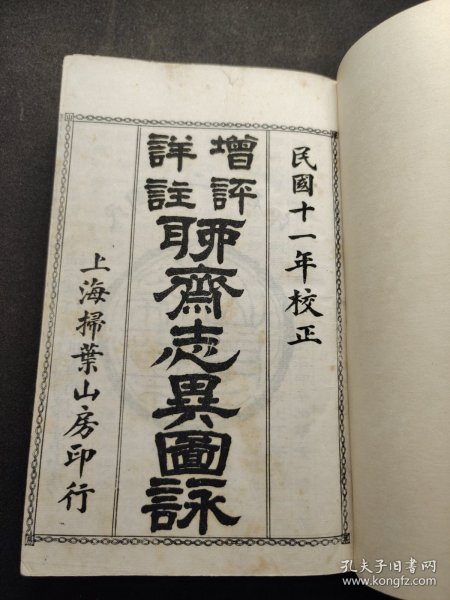 民國十一年校正
增評
詳註
聊齋志異圖詠
上海掃葉山房印行
孔夫子旧书网
www.kongfz.com